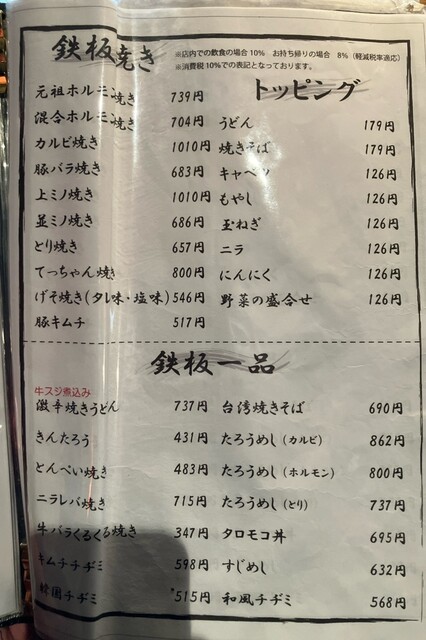 鉄板焼き
※店内での飲食の場合10% お持ち帰りの場合 8%(軽減税率適応)
※消費税10%での表記となっております。
元祖ホルモン焼き 739円
混合ホルモン焼き 704円
カルビ焼き 1010円
豚バラ焼き 683円
上ミノ焼き 1010円
並ミノ焼き 686円
とり焼き 657円
てっちゃん焼き 800円
げそ焼き(タレ味・塩味) 546円
豚キムチ 517円
トッピング
うどん 179円
焼きそば 179円
キャベツ 126円
もやし 126円
玉ねぎ 126円
ニラ 126円
にんにく 126円
野菜の盛合せ 126円
鉄板一品
牛スジ煮込み
激辛焼きうどん 737円
きんたろう 431円
とんぺい焼き 483円
ニラレバ焼き 715円
牛バラくるくる焼き 347円
キムチチヂミ 598円
韓国チヂミ 515円
台湾焼きそば 690円
たろうめし(カルビ) 862円
たろうめし(ホルモン) 800円
たろうめし(とり) 737円
タロモコ丼 695円
すじめし 632円
和風チヂミ 568円